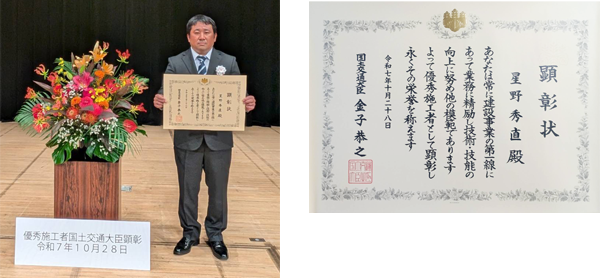 優秀施工者国土交通大臣顕彰
令和7年10月28日
顕彰状
星野秀直殿
あなたは常に建設事業の第一線に
あって業務に精励し技術・技能の
向上に努め他の模範であります
よって優秀施工者として顕彰し
永くその栄誉を称えます
令和七年十月二十八日
国土交通大臣 金子恭之